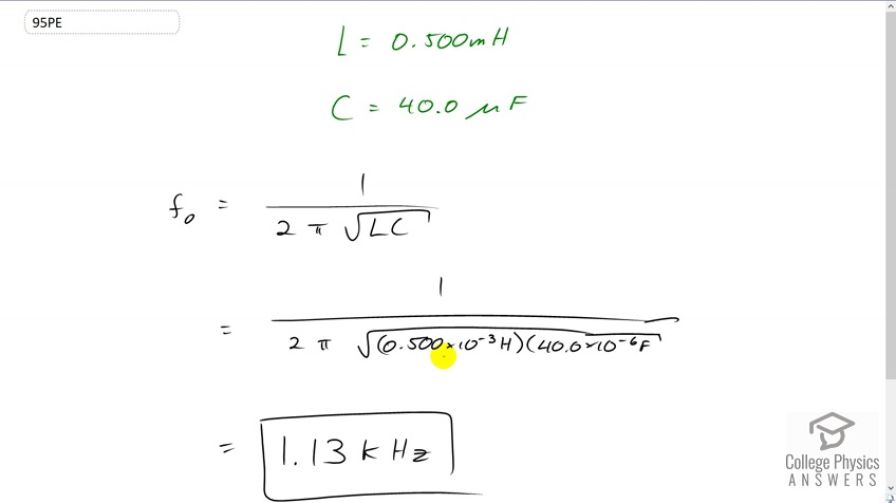 95PE
L = 0.500mH
C = 40.0 μF
f₀ = 1 / 2 π √LC
= 1 / 2 π √(0.500×10⁻³H)(40.0×10⁻⁶F
= 1.13 k Hz
College Physics
ANSWERS